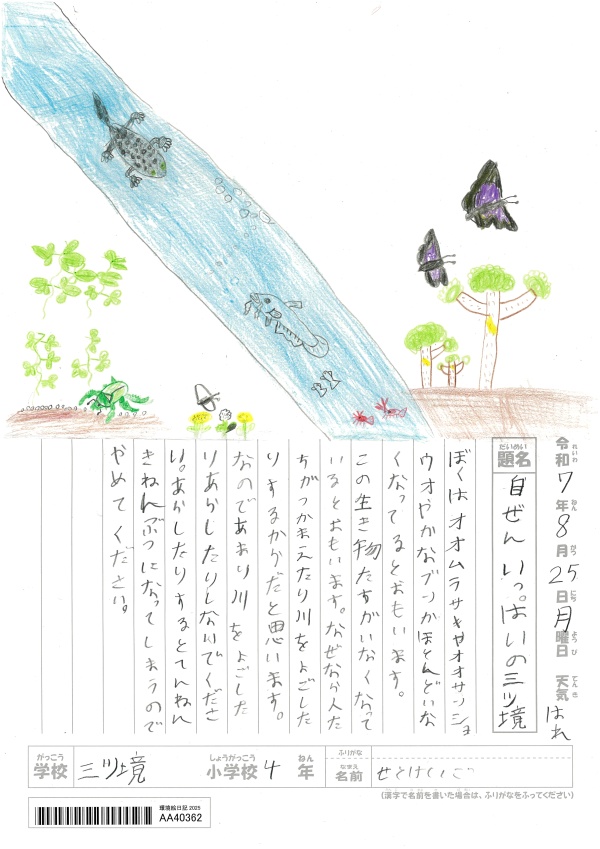 令和7年8月25日月曜日 天気 はれ
れいわ ねん がつ にち ようび てんき
だいめい
題名 自ぜんいっぱいの三ツ境
ぼくはオオムラサキやオオサンショ
ウオやカなブンがほとんどいな
くなってるとおもいます。
この生き物たちがいなくなって
いるとおもいます。なぜなら人た
ちがつかまえたり川をよごした
りするからだと思います。
なのであまり川をよごした
りあらしたりしないでくださ
い。あらしたりするとてんねん
きねんぶつになってしまうので
やめてください。
がっこう しょうがっこう ねん ふりがな
学校 三ツ境 小学校 4年 なまえ 名前 せとけい
(漢字で名前を書いた場合は、ふりがなをふってください)
環境絵日記 2025
AA40362